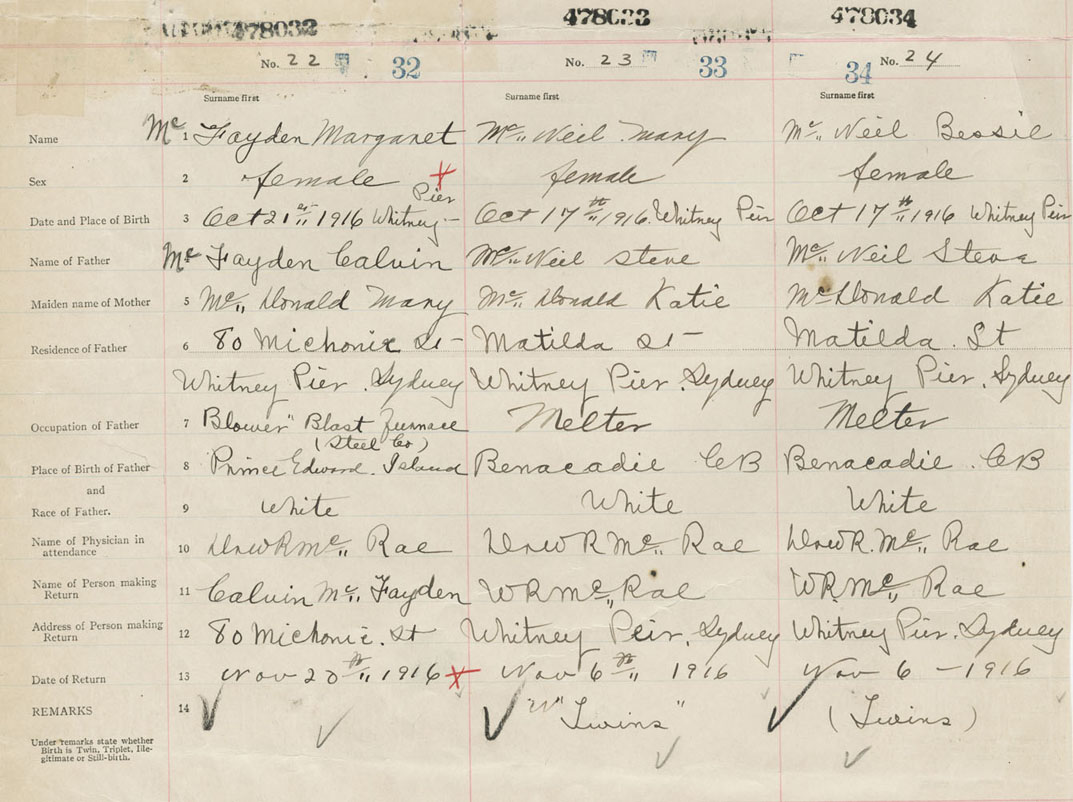 478032 478033 478034
No. 22 32 No. 23 33 34 No. 24
Surname first Surname first Surname first
Name 1 Mc Fayden Margaret Mc Neil Mary Mc Neil Bessie
Sex 2 female female female
Pier
Date and Place of Birth 3 Oct 21st 1916 Whitney – Oct 17th 1916. Whitney Pier Oct 17th 1916 Whitney Pier
Name of Father Mc Fayden Calvin Mc Neil Steve Mc Neil Steve
Maiden name of Mother 5 Mc Donald Mary Mc Donald Katie Mc Donald Katie
Residence of Father 6 80 St Matilda St Matilda St
Whitney Pier. Sydney Whitney Pier. Sydney Whitney Pier. Sydney
Occupation of Father 7 Blower" Blast furnace Melter Melter
(Steel Co)
Place of Birth of Father 8 Prince Edward Island Benacadie CB Benacadie. CB
and
Race of Father. 9 White White White
Name of Physician in attendance 10 Dr W R Mc Rae Dr W R Mc Rae Dr W R. Mc Rae
Name of Person making Return 11 Calvin Mc Fayden W R Mc Rae W R Mc Rae
Address of Person making Return 12 80 St Whitney Peir. Sydney Whitney Pier. Sydney
Date of Return 13 Nov 20th 1916 Nov 6th 1916 Nov 6 – 1916
REMARKS 14 "Twins" (Twins)
Under remarks state whether
Birth is Twin, Triplet, Ille-
gitimate or Still-birth.